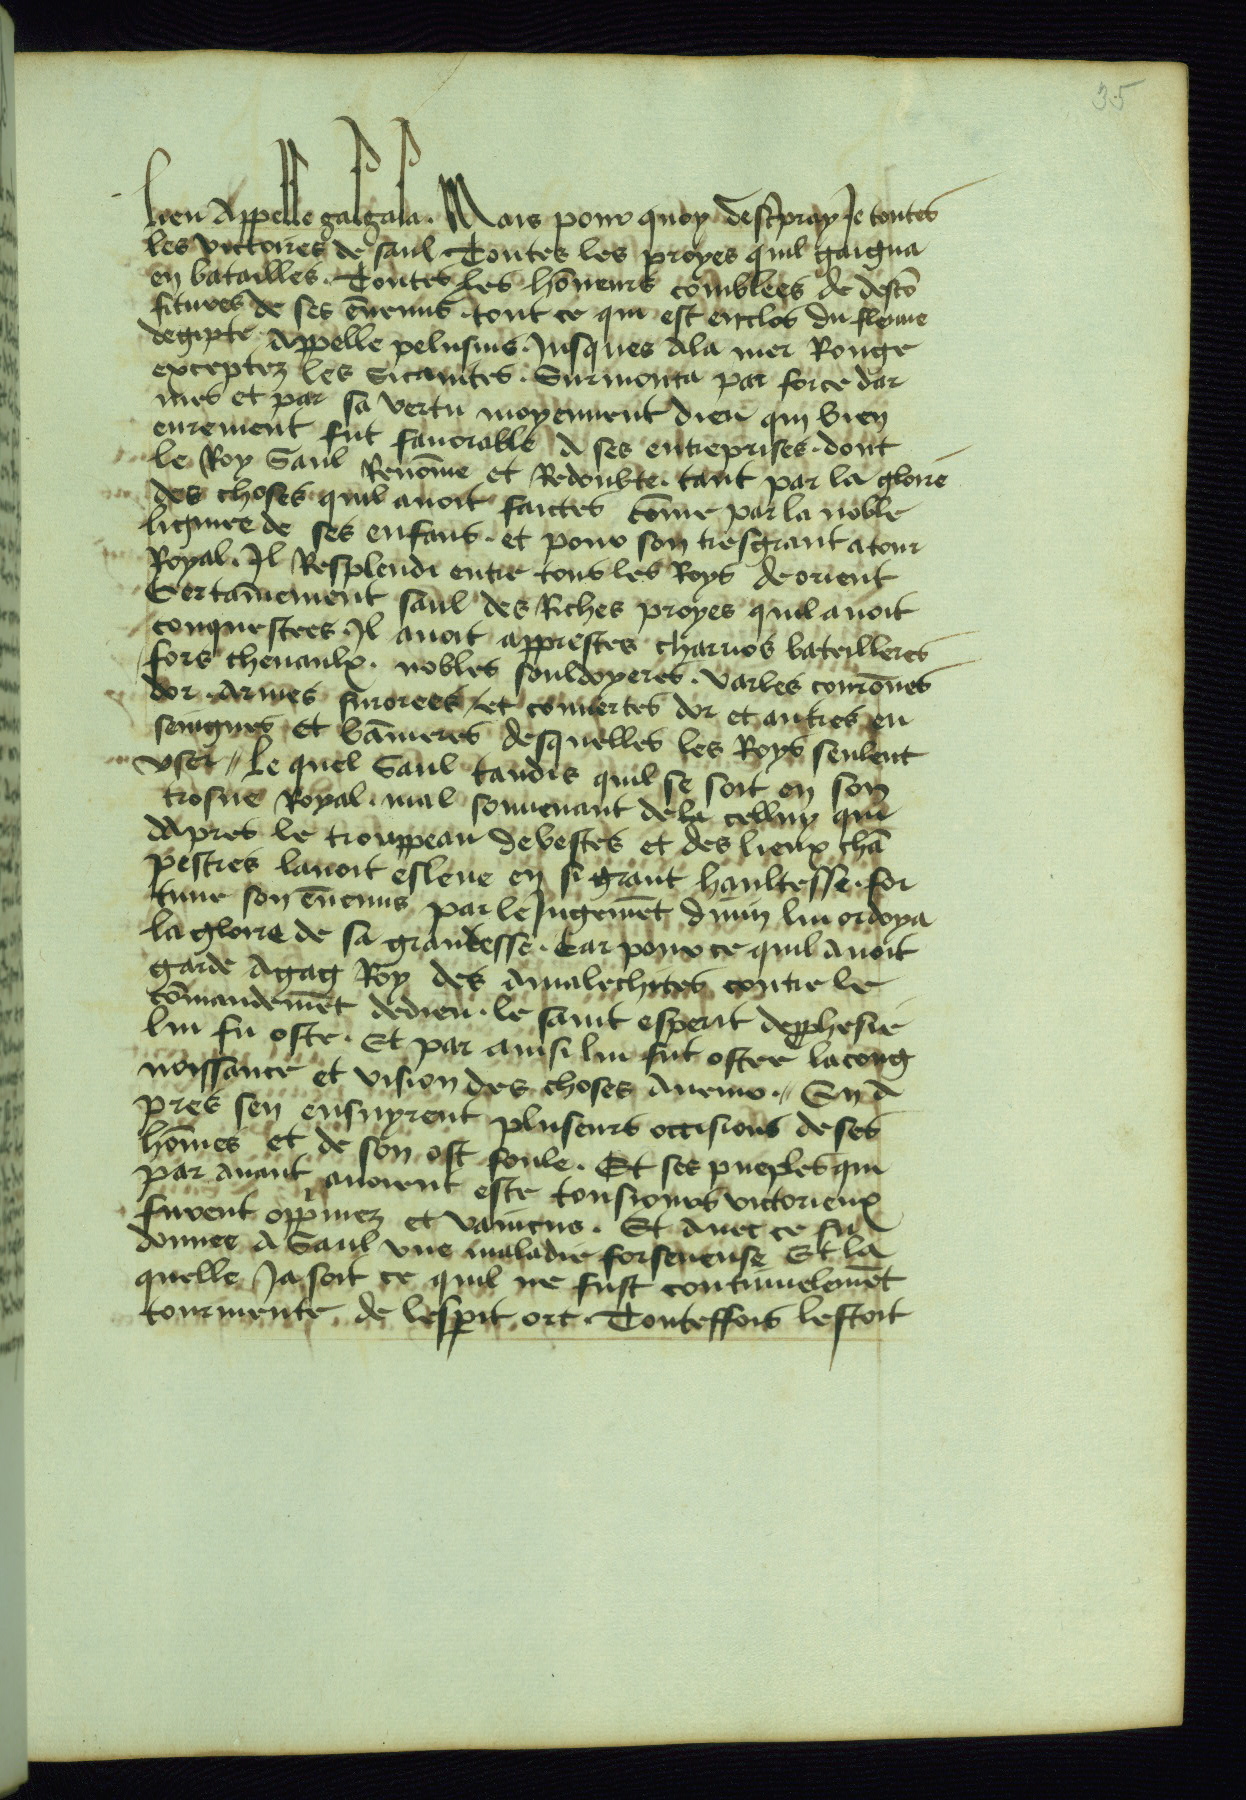 35
lieu Appelle galgala. Mais pour quoy descpray Je toutes
les victoires de saul. Toutes les proyes quil gaigna
en batailles. Toutes les hōneurs comblees de descō
fitures de ses ēnemis. tout ce qui est enclos du fleuue
degipte Appelle pelusius. Jusques Ala mer Rouge
exceptez les sicamites. Surmonta par force dar
mes et par sa vertu moyennent dieu qui bien
eurement fut fauorable A ses entreprises. dont
le Roy Saul Renōme et Redoubte. tant par la gloire
des choses quil auoit faictes cōme par la noble
lignee de ses enfans. et pour son tresgrant atour
Royal. Il Resplendi entre tous les Roys de orient
Certainnement saul des Riches proyes quil auoit
conquestees. Il auoit apprestes charrios bateilleres
fors cheuaulx. nobles souldoyeres. varles courōnes
dor. Armes surorees et couuertes dor et autres en
seignes et bānieres desquelles les Roys seulent
vser // Le quel Saul tandis quil se soit en son
trosne Royal. mal souuenant dela celluy qui
dapres le trouppeau debestes et des lieux chā
pestres lauoit esleue en si grant haultesse. for
tune son ēnemis par le Jugemēt diuin lui ordoya
la gloire de sa grandesse. Car pour ce quil Auoit
garde Agag Roy des Amalechites contre le
cōmandemēt dedieu. le saint esperit depphesie
lui fu oste. Et par ainsi lui fut ostee lacong
noissance et vision des choses Auenir. // En A
pres sen ensuyrent pluseurs occisions deses
hōmes et de son ost foule. Et ses pueples qui
par auant auoient este tousiours victorieux
furent opp̄mez et vaincus. Et Auec ce fu
donnee A Saul vne maladie forseneuse Et la
quelle Ja soit ce quil ne fust continuelemēt
tourmente de lesp̄it ort. Touteffois lestoit